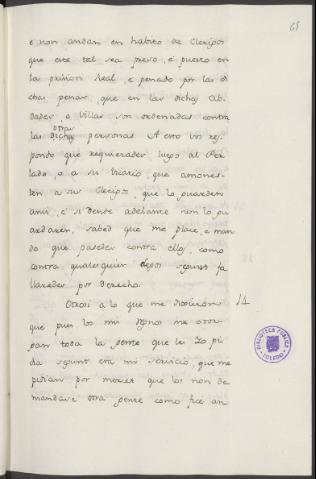 61
e non andan en habito de Clerigos
que este tal sea preso, e puesto en
la prision Real e penado por las di
chas penas, que en las dichas Cib
dades, o Villas son ordenadas contra
las otras dichas personas. A esto vos res
pondo que requierades luego al Per
lado, o a su Vicario, que amones
ten a sus Clerigos, que lo guarden
ansi, e si dende adelante non lo gu
ardaren, sabed que me place, e man
do que pasedes contra ellos, como
contra qualesquier legos segund fa
llaredes por derecho.
Otrosi a lo que me dixieron 14
que pues los mis Regnos me otor
gan toda la gente que les Yo pi
dia segund era mi servicio, que me
pidian por merced que los non de
mandase otra gente como fice an
BIBLIOTECA PUBLICA
TOLEDO